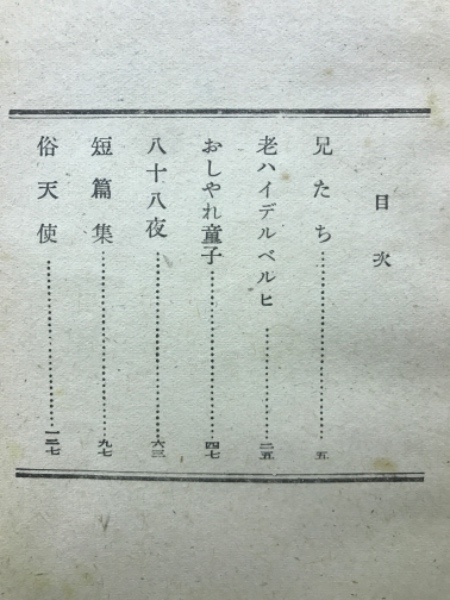 目次
兄たち……………………五
老ハイデルベルヒ……………………二五
おしやれ童子……………………四七
八十八夜……………………六三
短篇集……………………九七
俗天使……………………一二七